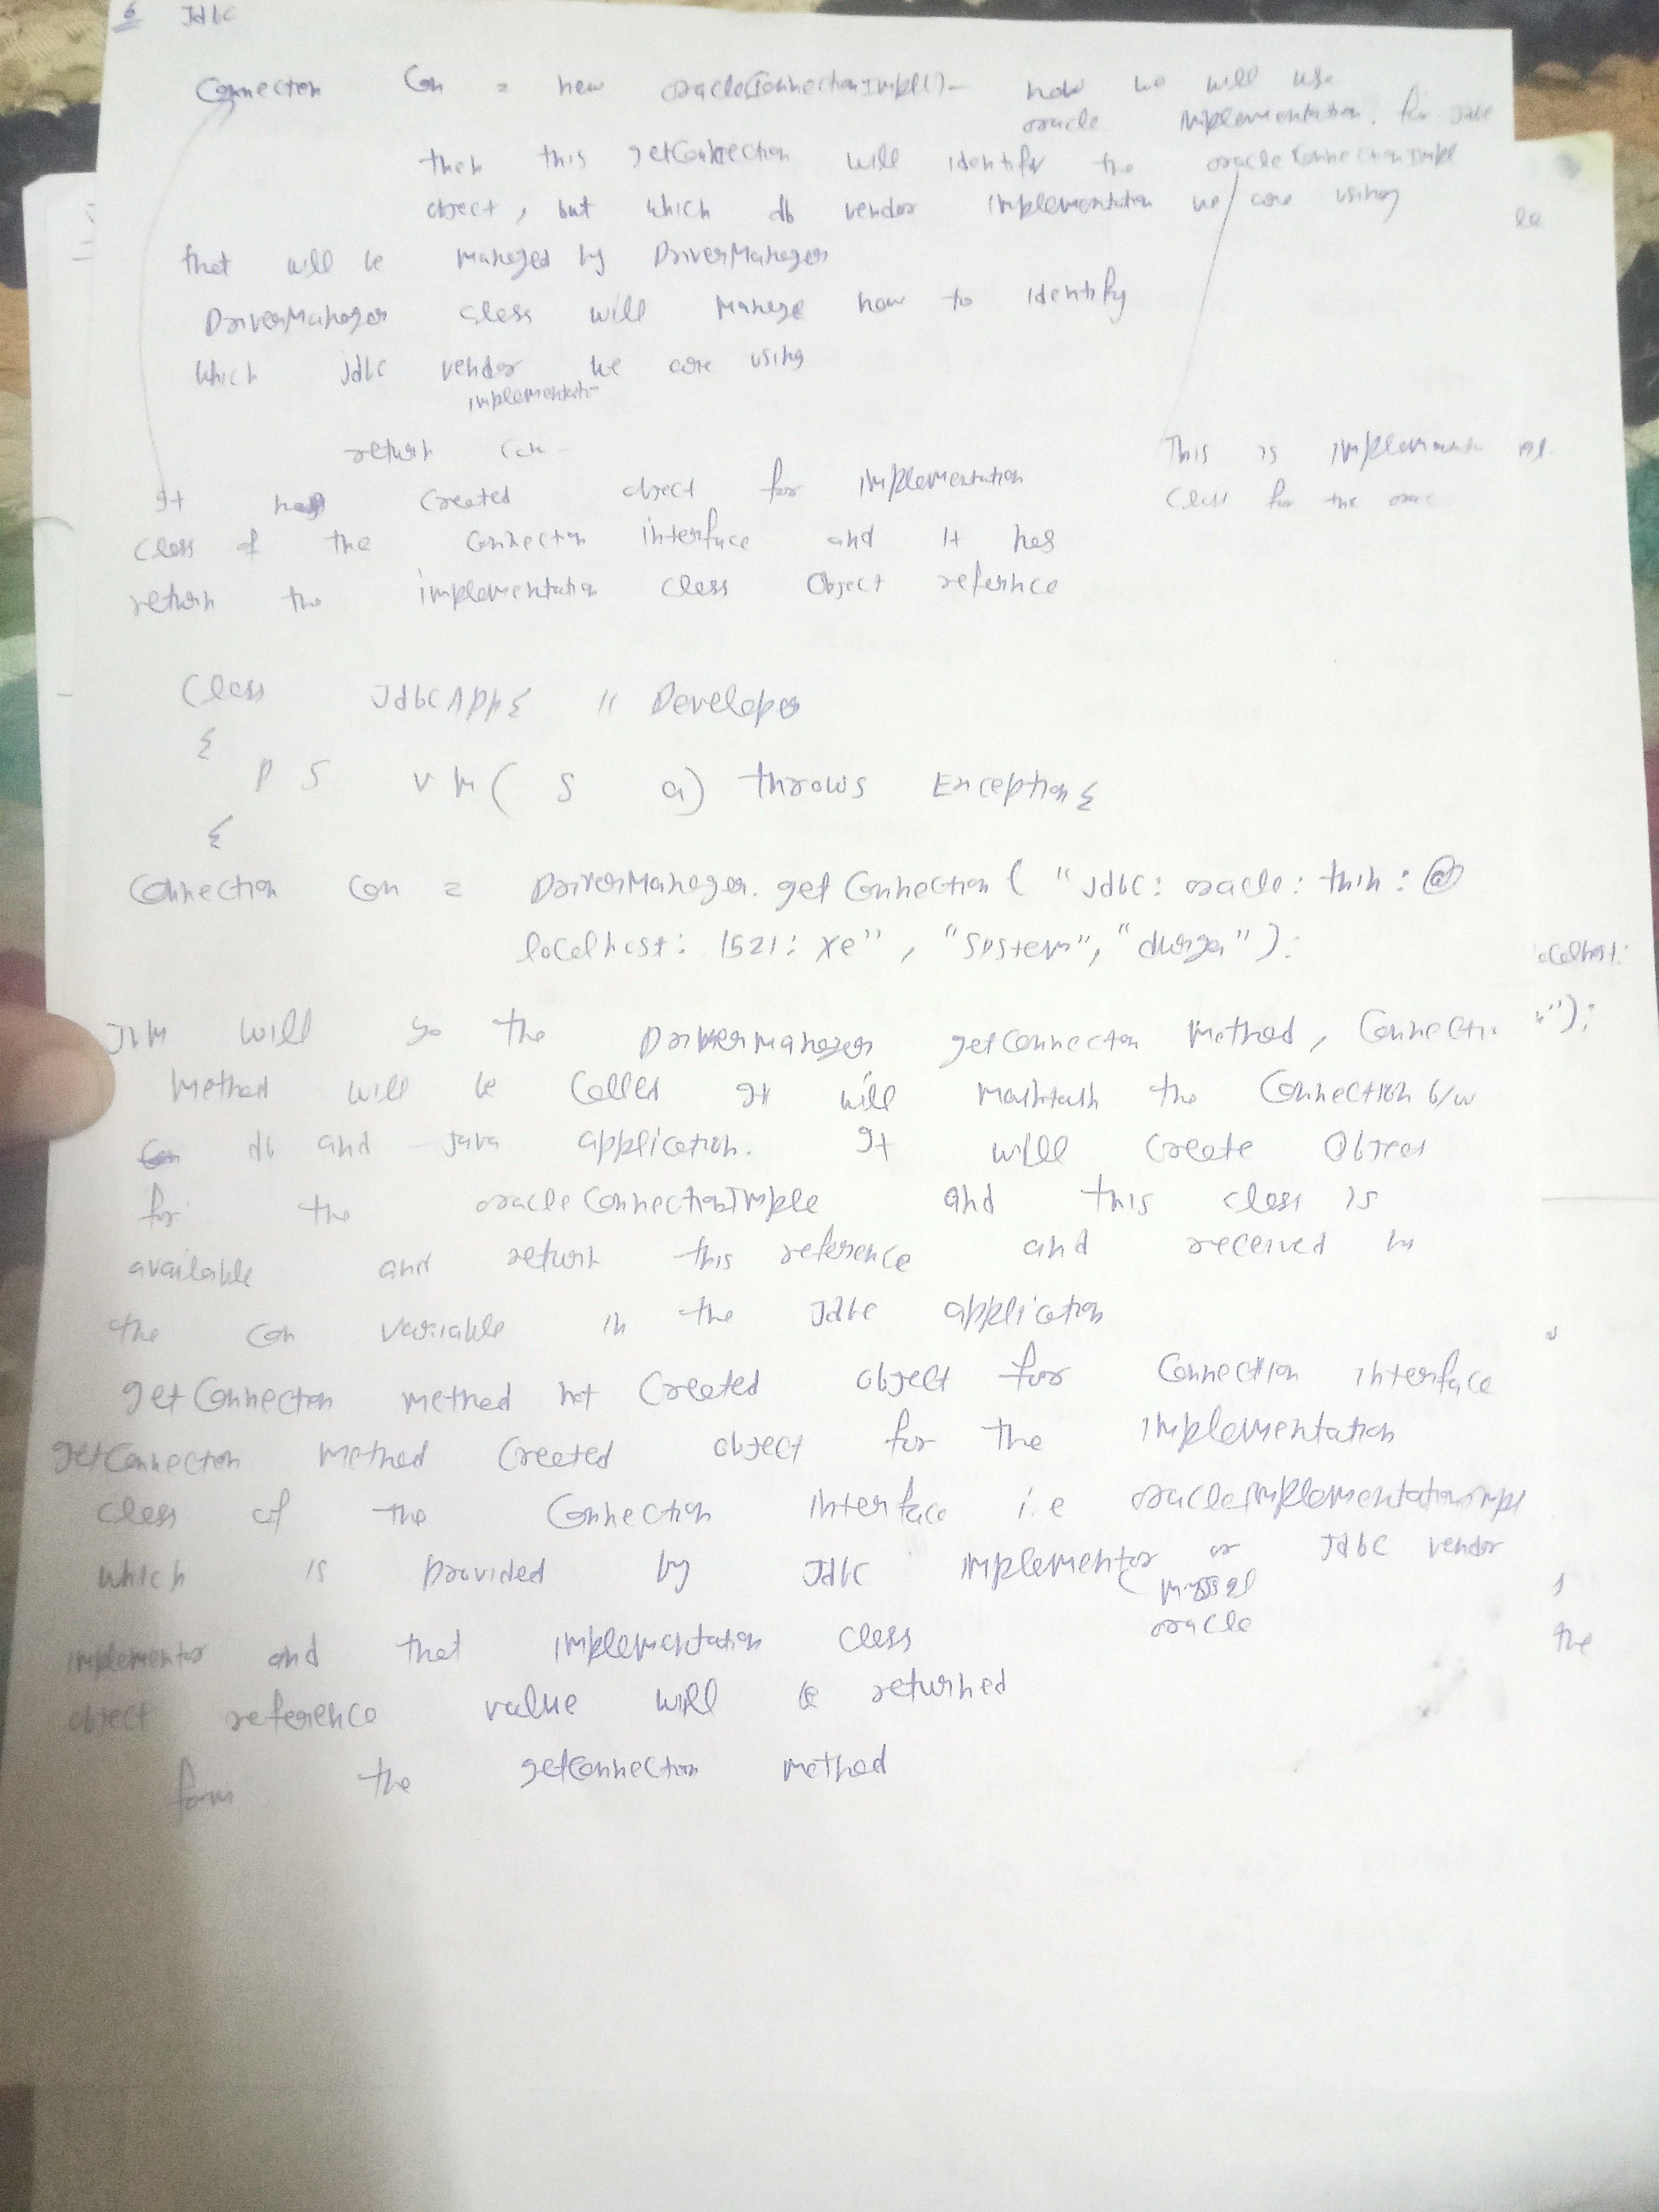 6 Jdbc
Connection Con = new oracleConnectionImpl()- now we will use
oracle implementation for Jdbc
then this getConnection will identify the oracleConnectionImpl
object, but which db vendor implementation we are using
that will be managed by DriverManager
DriverManager class will manage how to identify
which jdbc vendor we are using
implementati-
return con-
It has created object for implementation
class of the Connection interface and it has
return the implementation class Object refernce
This is implementa
class for the orac
Class JdbcApp{ // Developer
{
P S V m( S a) throws Exception{
{
Connection Con = DriverManager.getConnection( "Jdbc: oracle: thin: @
localhost: 1521: xe", "System", "durga"):
ocalhost:
JVM will go the DriverManager getConnection Method, Connecti
");
Method will be Called It will maintain the Connection b/w
db and java application. It will Create Object
for the oracleConnectionImple and this class is
available and return this reference and received in
the con variable in the Jdbc application
getConnection method not Created object for Connection interface
getConnection Method Created object for the implementation
class of the Connection interface i.e oracleimplementationimpl
which is provided by Jdbc implementor or Jdbc vendor
(mysql
oracle
implementor and that implementation class
the
object reference value will be returned
form the getConnection method